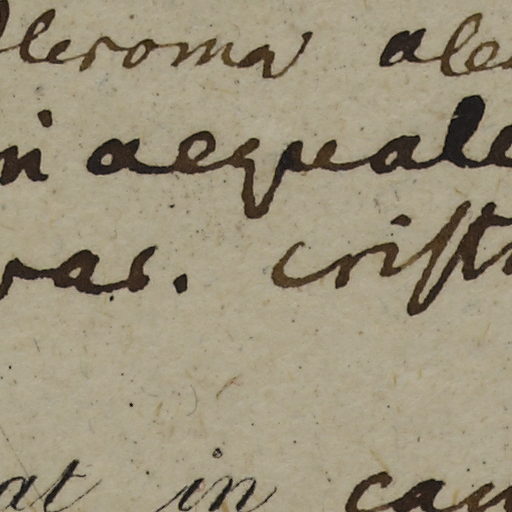 leroma ale
in aequale
var. crist
at in cau